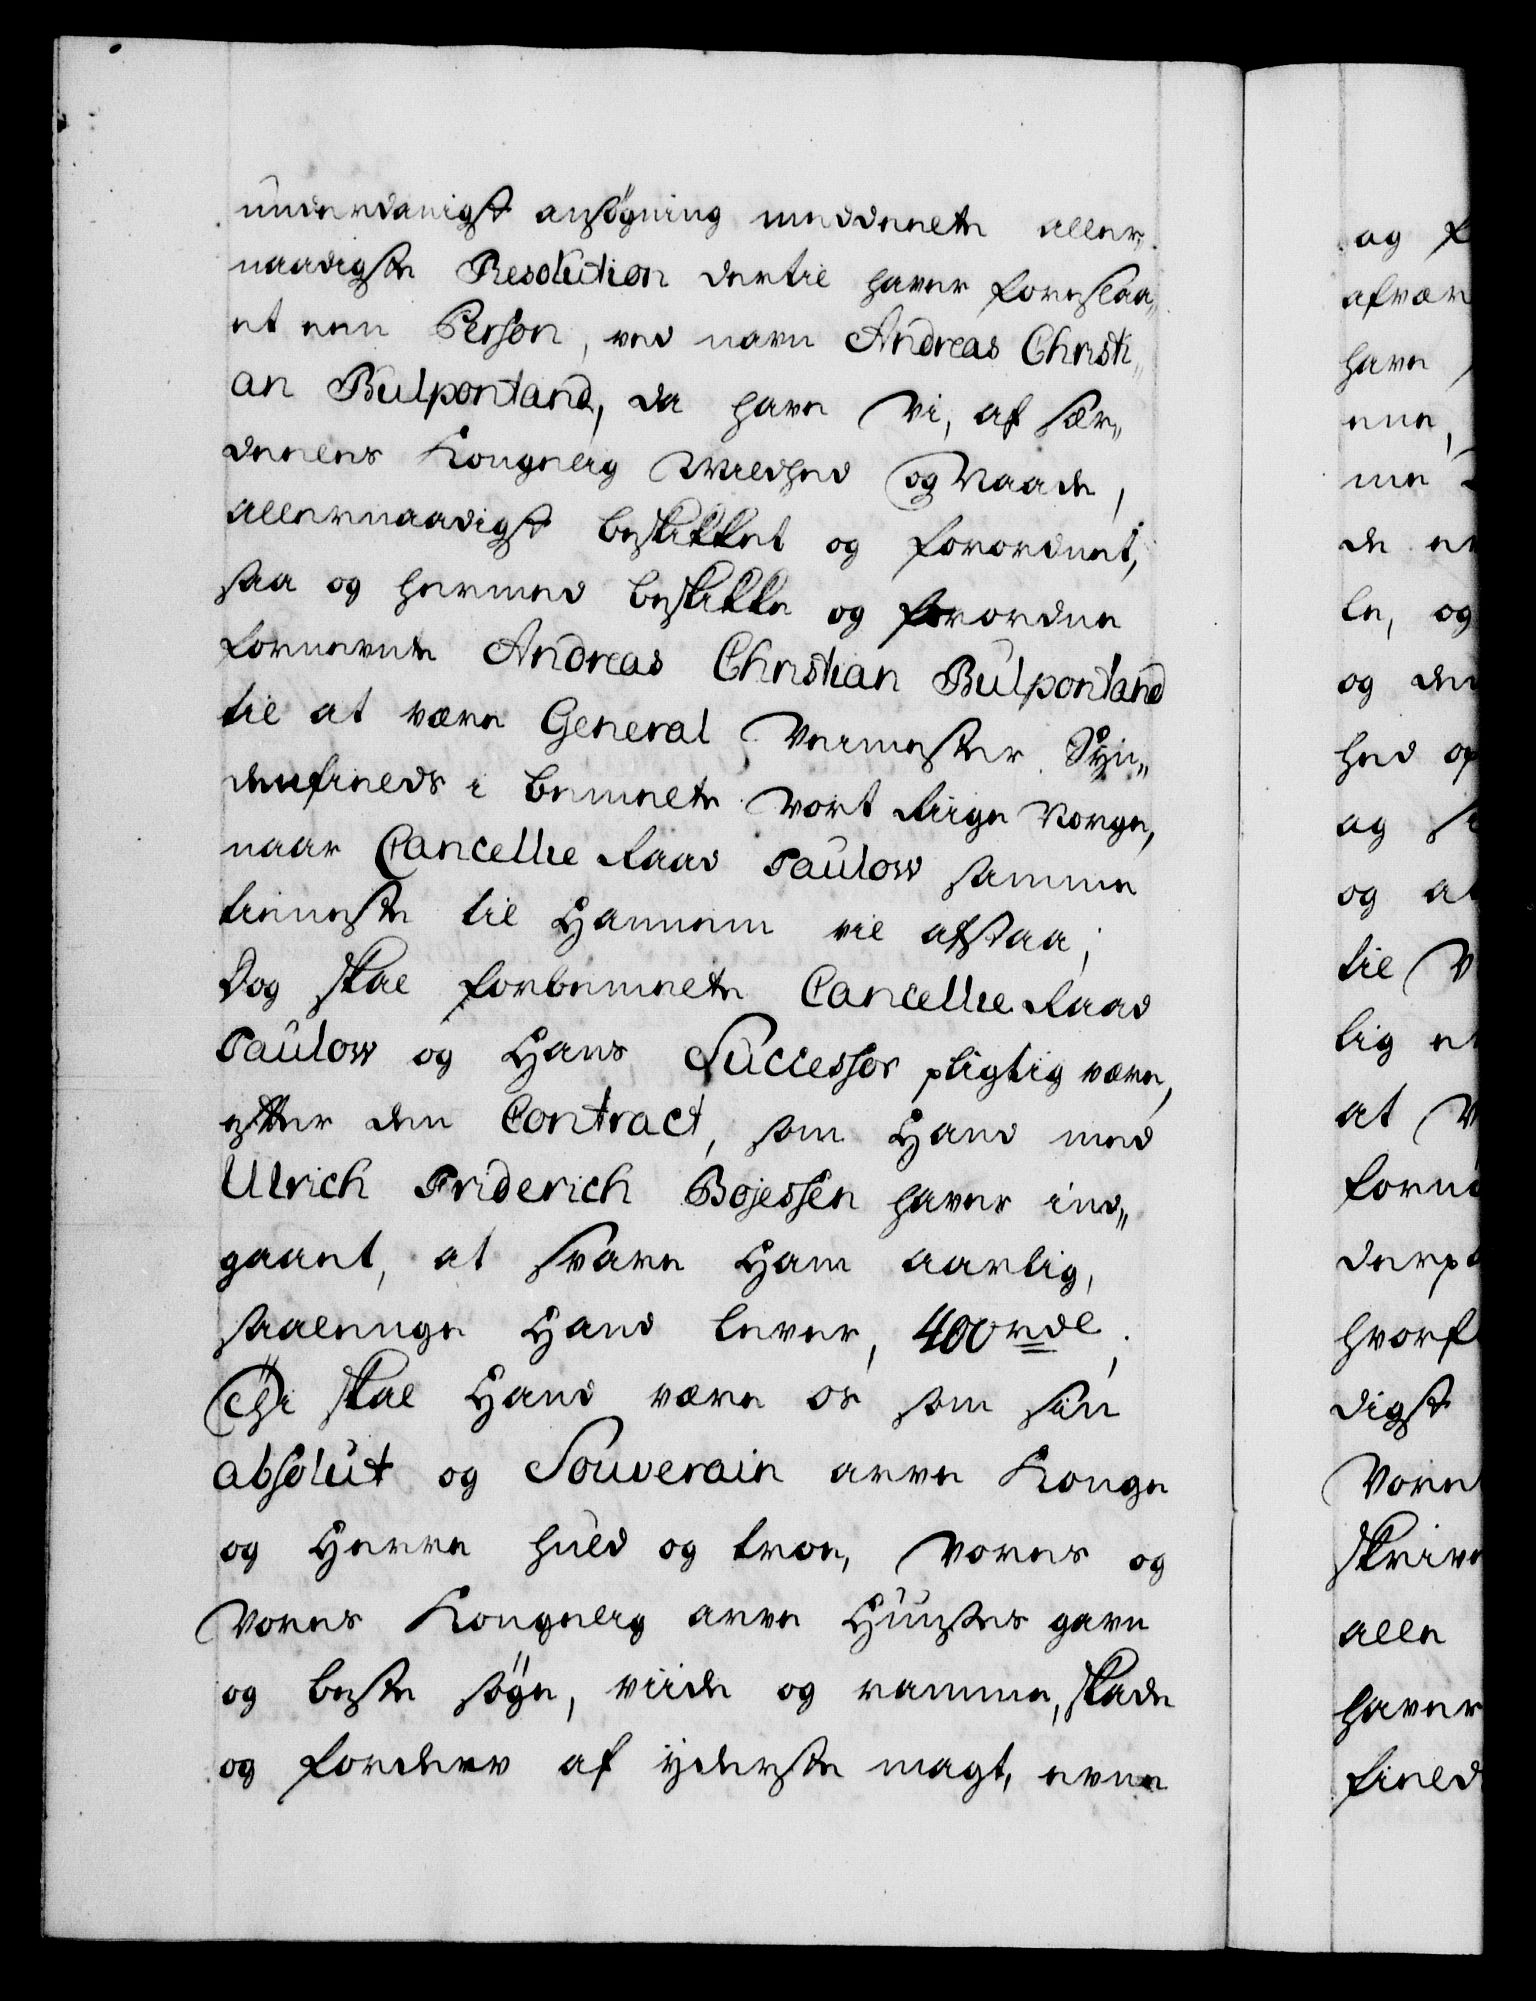 underdanigst ansøgning meddeelte aller„
naadigste Resolution dertil haver foreslaa„
et een Person, ved navn Andreas Christi„
an Bulpontand, da have Vi, af sær„
deeles Kongelig Mildhed og Naade,
allernaadigst beskikket og forordnet,
saa og hermed beskikke og forordne
fornevnte Andreas Christian Bulpontand
til at være General Veimester Syn„
denfields i bemeelte Vort Riige Norge,
naar Cancellie Raad Paulow samme
tieneste til Hannem vil afstaa;
Dog skal forbemeelte Cancellie Raad
Paulow og Hans Successor pligtig være,
efter den Contract, som Hand med
Ulrich Friderich Bojessen haver ind„
gaaet, at svare Ham aarlig,
saalenge Hand lever, 400 rdl.;
Thi skal Hand være os som sin
absolut og Souverain arve Konge
og Herre huld og troe, Vores og
Vores Kongelig arve Huuses gavn
og beste søge, viide og ramme, skade
og forderv af yderste magt, evne
og
afvær
have
ene,
me
de
le, og
og den
hed op
ag
og
til V
lig
at
forn
derpa
hvorf
digst
Vore
skrive
alle
haver
field